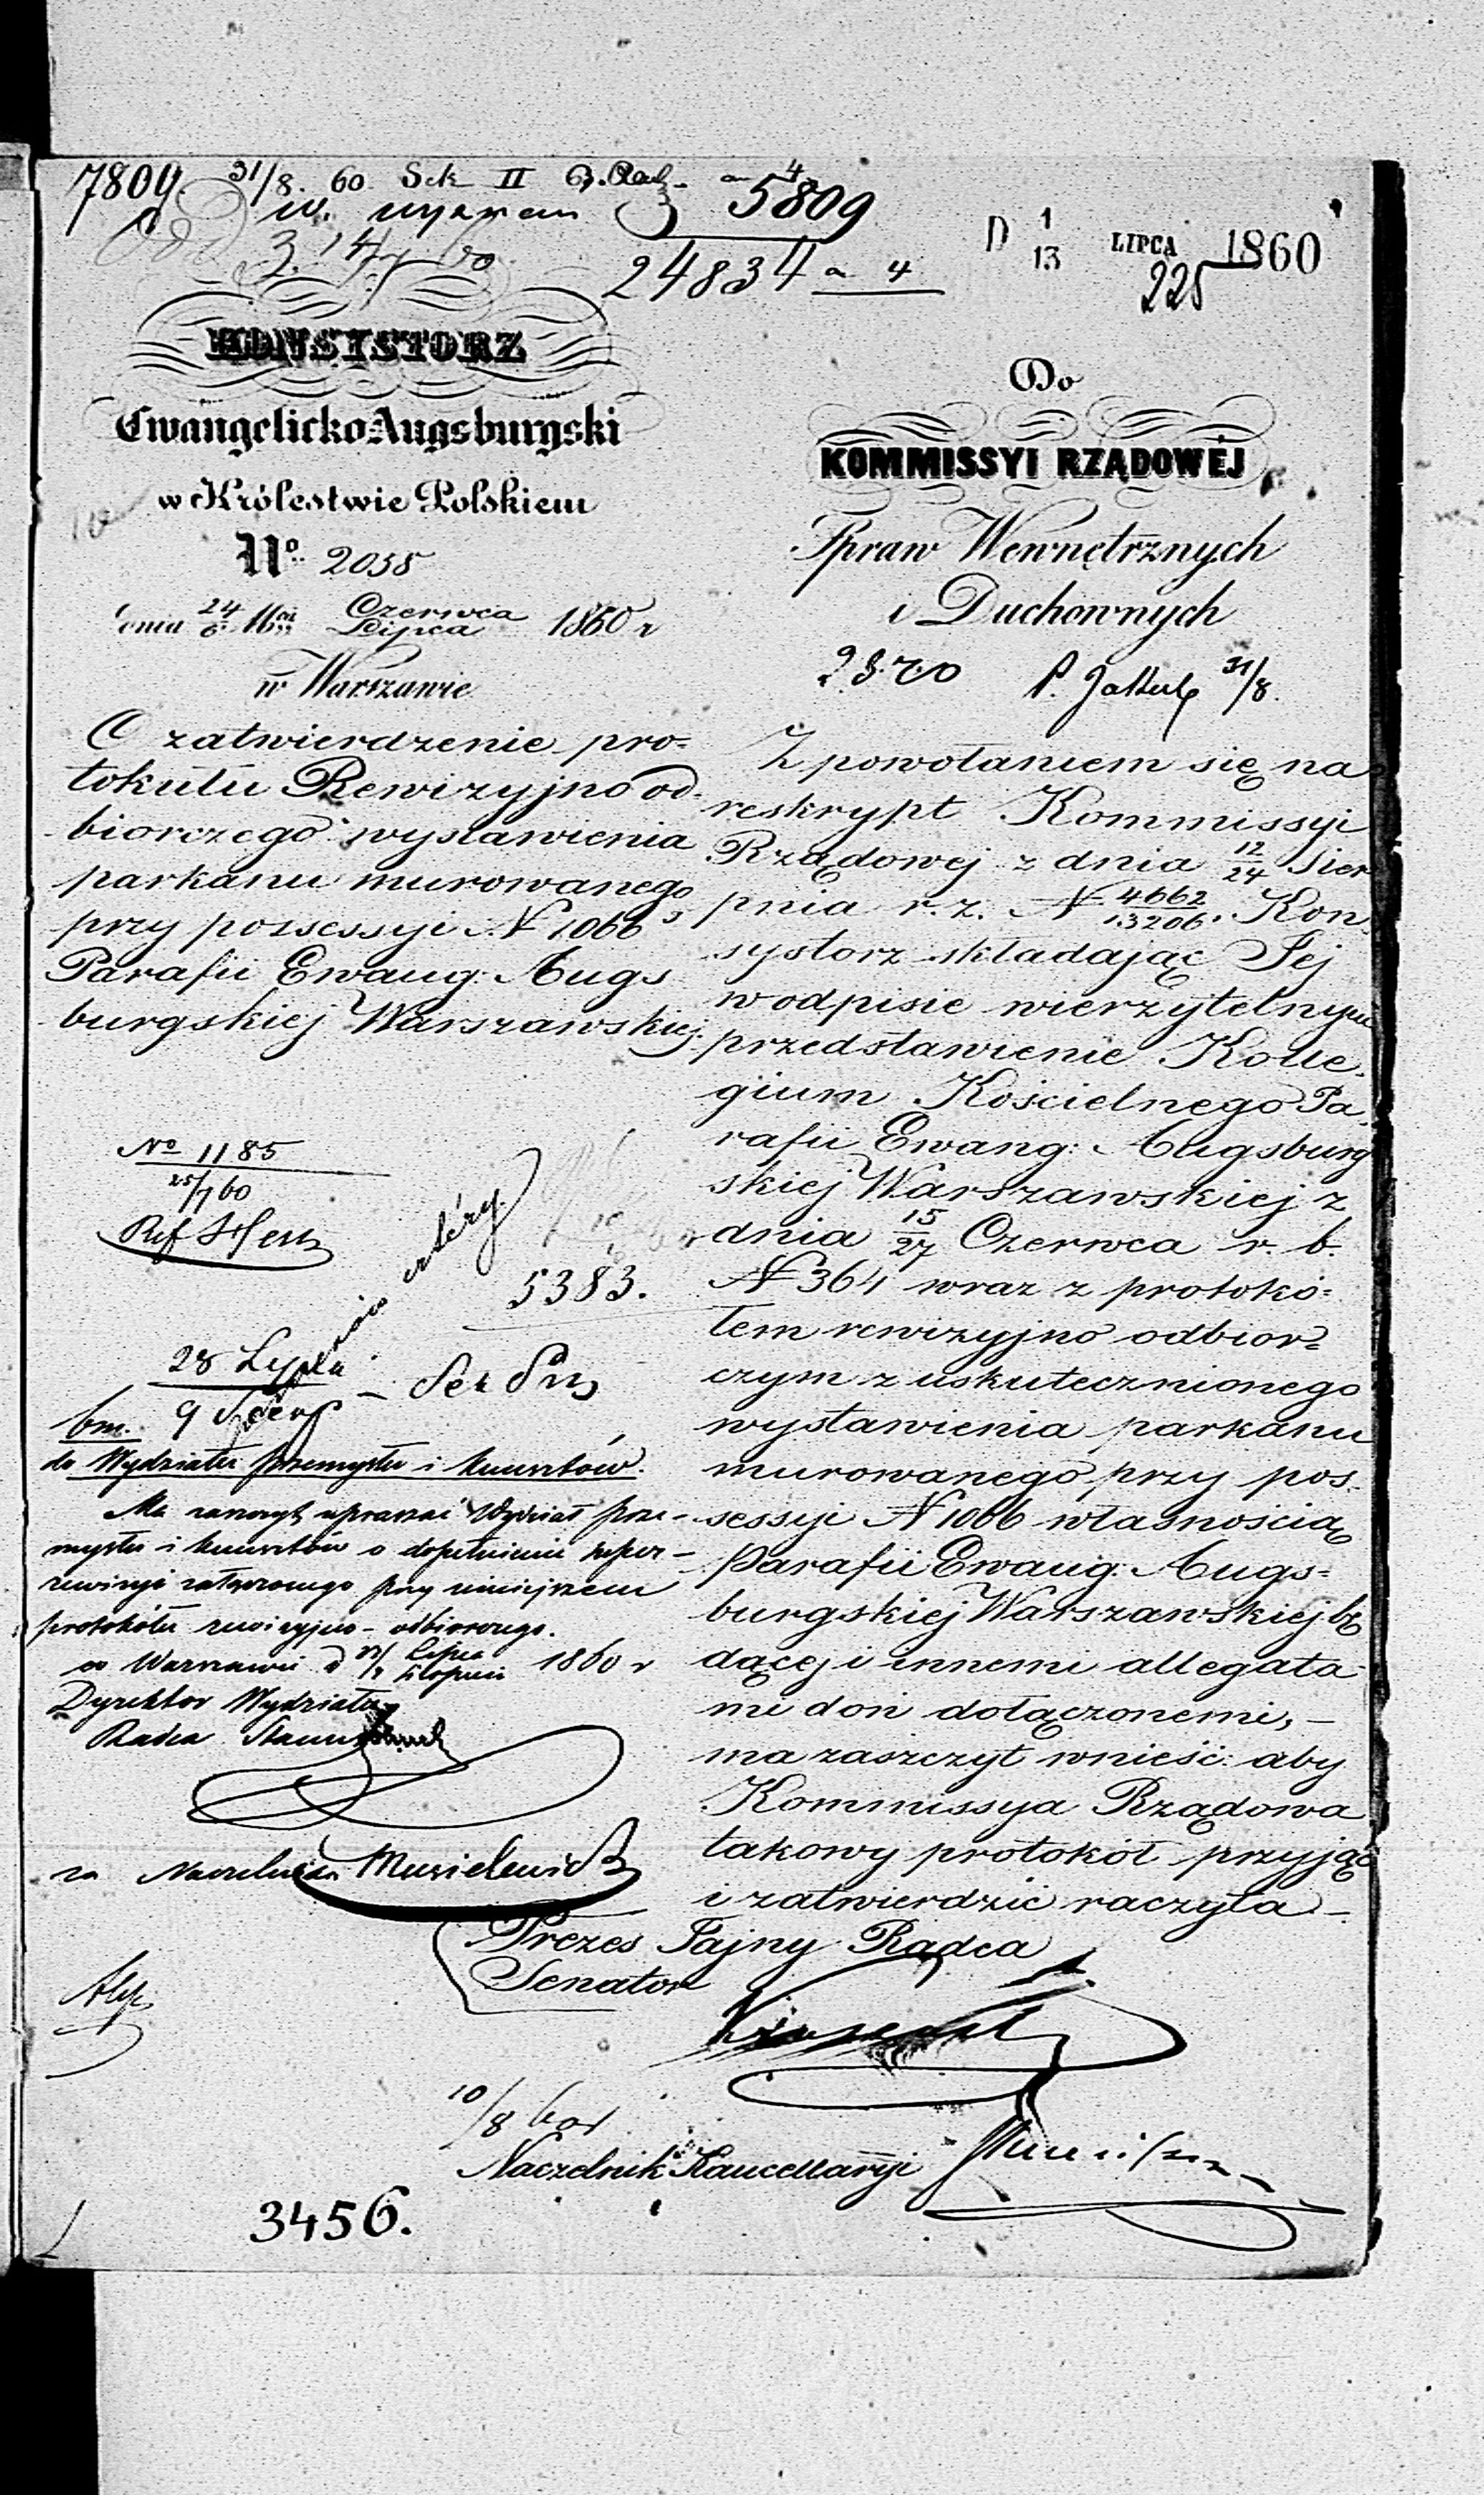 7809. 31/8. 60 Sek II
5809
24834 a 4
D 1/13 LIPCA 1860
225
KONSYSTORZ
Ewangelicko Augsburgski
w Królestwie Polskiem
No 2058
dnia 24/6 Czerwca/Lipca 1860 r
w Warszawie
O zatwierdzenie pro=
tokułu Rewizyjno od=
biorczego wystawienia
parkanu murowanego
przy possessyi N 1066
Parafii Ewang: Augs
burgskiej Warszawskiej.
No 1185
25/7 60
Ref
cztéry
5383.
28 Lipca
9 Sierp
bm.
do Wydziału przemysłu i kunsztów.
Ma zaszczyt upraszać Wydział prze-
mysłu i kunsztów o dopełnienie super-
rewizyi załączonego przy niniejszem
protokółu rewizyjno-odbiorczego.
w Warszawie d Lipca/Sierpnia 1860 r
Dyrektor Wydziału
Radca Stanu
za Naczelnika
Do
KOMMISSYI RZĄDOWÉJ
Spraw Wewnętrznych
i Duchownych
31/8.
Z powołaniem się na
reskrypt Kommissyi
Rządowej z dnia 12/24 Sier
pnia r. z. N 4662/13206. Kon
systorz składając Jej
w odpisie wierzytelnym
przedstawienie Kolle=
gium Kościelnego Pa
rafii Ewang: Augsburg
skiej Warszawskiej z
dnia 15/27 Czerwca r. b.
N 364 wraz z protokó=
łem rewizyjno odbior=
czym z uskutecznionego
wystawienia parkanu
murowanego przy pos=
sessyi N 1066 własnością
Parafii Ewang: Augs=
burgskiej Warszawskiej bę
dącej i innemi allegata
mi doń dołączonemi, –
ma zaszczyt wnieść: aby
Kommissya Rządowa
takowy protokół przyjąć
i zatwierdzić raczyła –
Prezes Tajny Radca
Senator
10/8
Naczelnik Kancellaryi
3456.